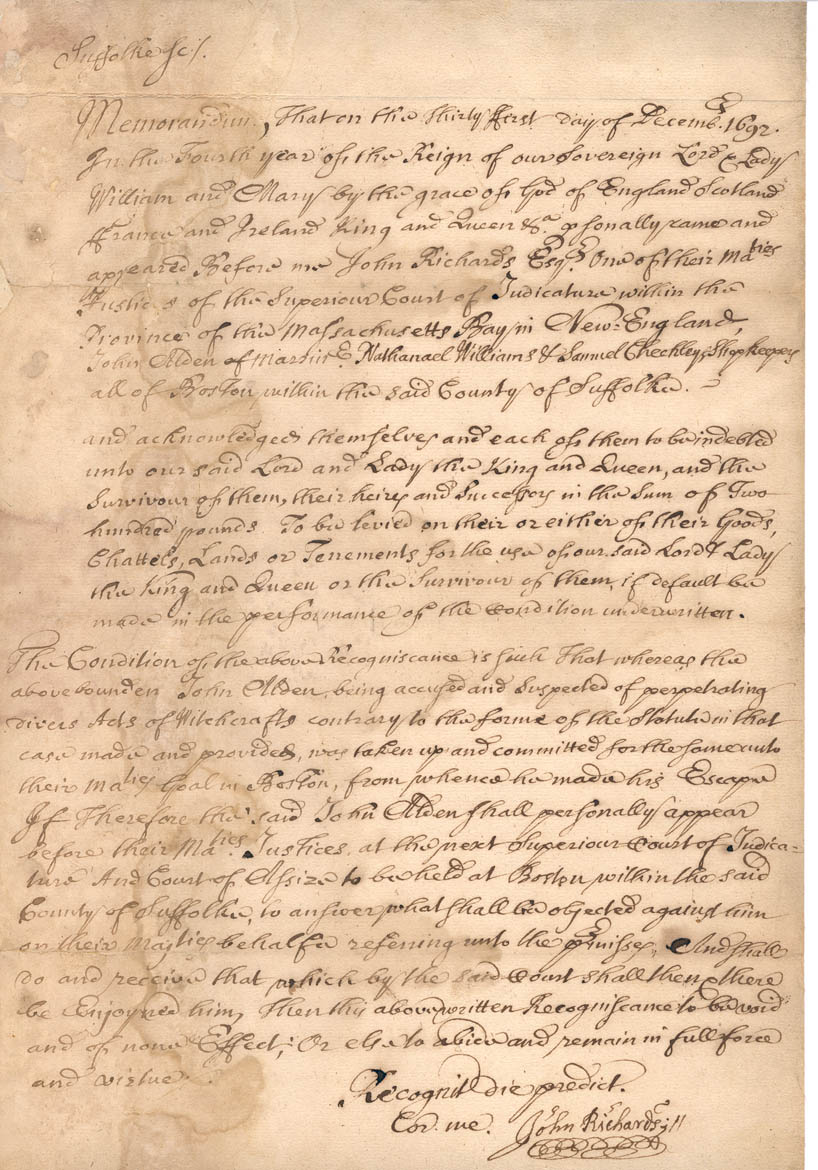 Suffolke sc/.
Memorandum, That on the thirty ffirst day of Decemb.r 1692.
In the Fourth year of the Reign of our Sovereign Lord & Lady
William and Mary by the grace of God of England Scotland
ffrance and Ireland King and Queen &.a psonally came and
appeared Before me John Richards Esq.r One of their Ma.ties
Justices of the Superiour Court of Judicature within the
Province of the Massachusetts Bay in New-England,
John Alden of Marrin.r Nathanael Williams & Samuel Checkley Shopkeepers
all of Boston within the said County of Suffolke.
and acknowledged themselves and each of them to be indebted
unto our said Lord and Lady the King and Queen, and the
Survivour of them, their heirs and Successors in the Sum of Two
hundred pounds To be levied on their or either of their Goods,
Chattels, Lands or Tenements for the use of our said Lord & Lady
the King and Queen or the Survivour of them, if default be
made in the performance of the Condition underwritten.
The Condition of the above Recogniscance is such That whereas the
abovebounden John Alden being accused and Suspected of perpetrating
divers Acts of Witchcrafts contrary to the forme of the Statute in that
case made and provided, was taken up and committed for the same unto
their Ma.ties Goal in Boston, from whence he made his Escape
If Therefore the said John Alden shall personally appear
before their Ma.ties Justices at the next Superiour Court of Judica-
ture And Court of Assize to be held at Boston within the said
County of Suffolke, to answer what shall be objected against him
on their Maj.ties behalfe refering unto the p.rmisses, And shall
do and receive that which by the said Court shall then & there
be Enjoyned him, Then this abovewritten Recogniscance to be void
and of none Effect; Or else to abide and remain in full force
and virtue.
Recognit die predict.
Cor. me. John Richards